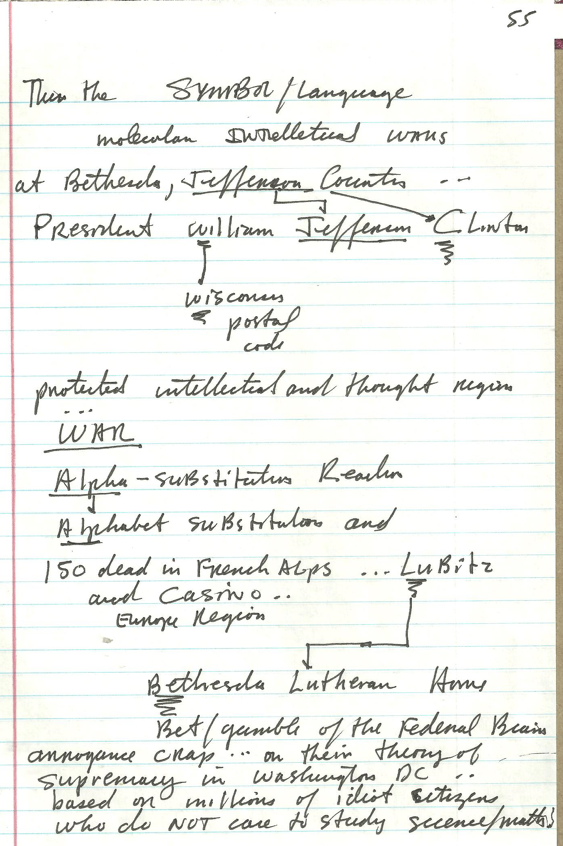 55
Then the SYMBOL/Language
molecular Intelletical wars
at Bethesda, Jefferson Counties ...
President William Jefferson Clinton
Wisconsin
postal
code
protected intellectual and thought region
...
WAR
Alpha-substitution Reaction
Alphabet substitution and
150 dead in French Alps ... LuBitz
and Casino ..
Europe Region
Bethesda Lutheran Home
Bet/gamble of the Federal Brain
annoyance crap ... on their theory of
supremacy in Washington DC ..
based on millions of idiot citizens
who do NOT care to study science/math